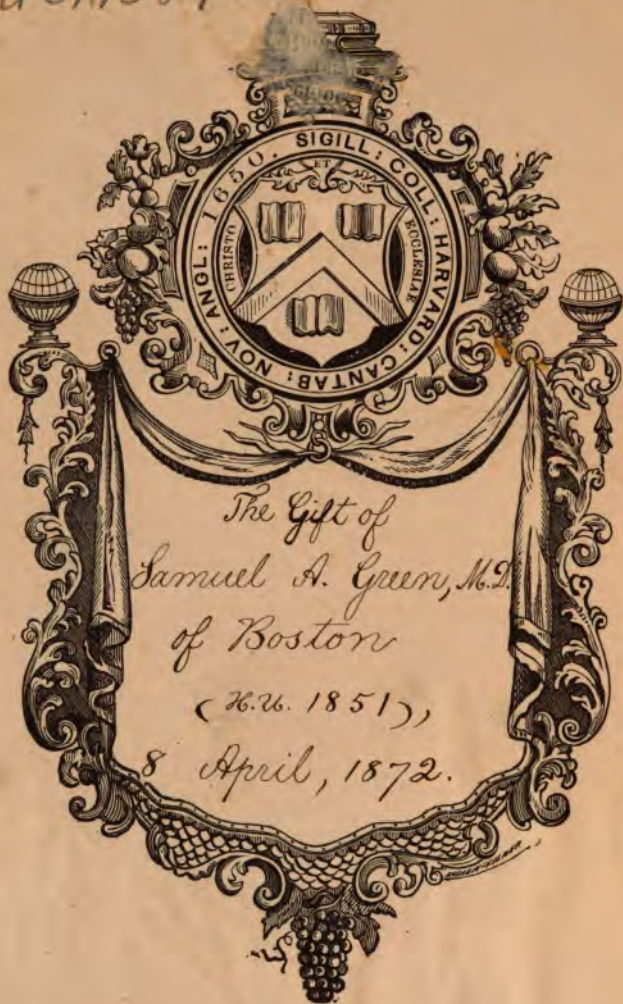 SIGILL : COLL : HARVARD : CANTAB : NOV : ANGL : 1650.
ET
CHRISTO
ECCLESIAE
The Gift of
Samuel A. Green, M.D.
of Boston
(H.U. 1851),
8 April, 1872.